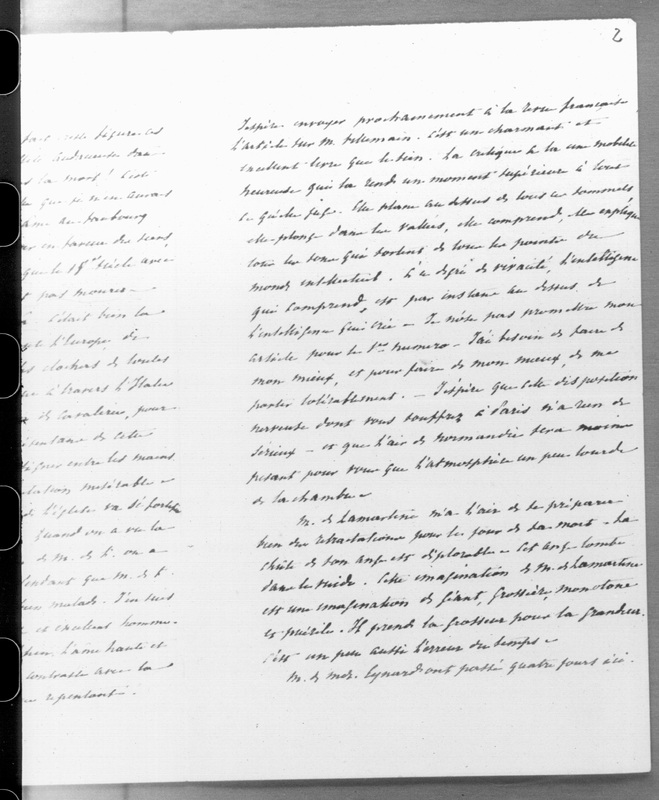 2
tout cette figure les
la mort ! C'est
que je n'en aurais
en faveur des
que le 19me siècle avec
pas mourir —
c'était bien la
l'Europe, de
clochers de toutes
à travers l'Italie
de Cavalerie, pour
de cette
entre les mains
misérable —
l'église va se fortifier
quand on a vu la
de M. de L. on a
pendant que M. de L.
bien malade. J'en suis
et excellent homme.
l'âme haute et
contraste avec la
repentant.
J'espère envoyer prochainement à la revue française
l'article sur M. Villemain. C'est un charmant et
excellent livre que le sien. La critique a là une mobilité
heureuse qui la rend un moment supérieure à tout
ce qu'elle juge. Elle plane au dessus de tous les sommets
elle plonge dans les vallées, elle comprend, elle explique
tous les sons qui sortent de tous les points du
monde intellectuel. À ce degré de vivacité, l'intelligence
qui comprend, est par instans au dessus de
l'intelligence qui crée — Je n'ose pas promettre mon
article pour le 1er numéro — J'ai besoin de faire de
mon mieux, et pour faire de mon mieux, de me
porter tolérablement. — J'espère que cette disposition
nerveuse dont vous souffrez à Paris n'a rien de
sérieux — et que l'air de Normandie sera moins
pesant pour vous que l'atmosphère un peu lourde
de la chambre —
M. de Lamartine m'a l'air de se préparer
bien des rétractations pour le jour de sa mort — La
chûte de son ange est déplorable — Cet ange tombe
dans le vuide. Cette imagination de M. de Lamartine
est une imagination de géant, grossière, monotone
et puérile. Il prend la grosseur pour la grandeur.
C'est un peu aussi l'erreur du temps —
M. & Mde. Eynard ont passé quatre jours ici.